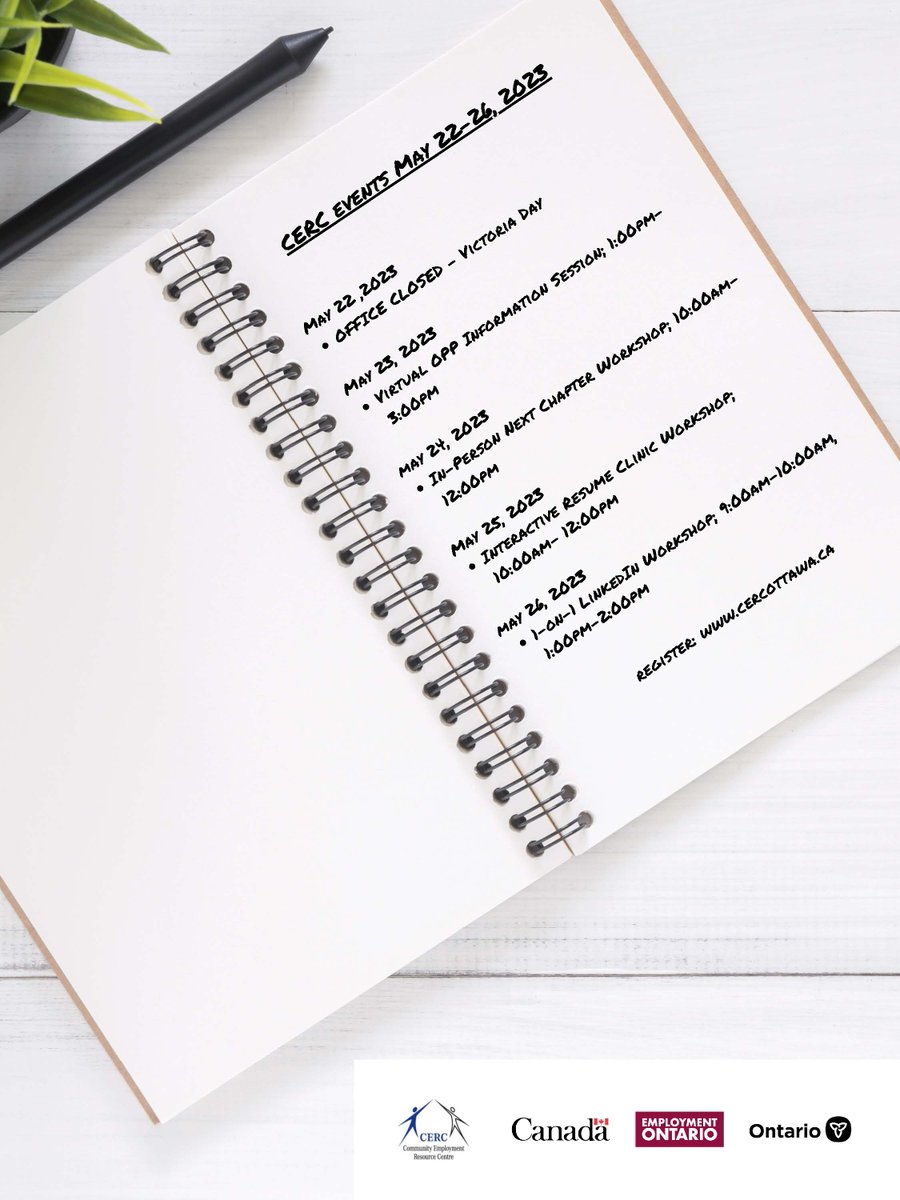 CERC events May 22-26, 2023
May 22 ,2023
• OFFICE CLOSED - Victoria Day
May 23, 2023
• Virtual OPP Information Session; 1:00pm-
3:00pm
May 24, 2023
• In-Person Next Chapter Workshop; 10:00am-
12:00pm
May 25, 2023
• Interactive Resume Clinic Workshop;
10:00am- 12:00pm
May 26, 2023
• 1-on-1 LinkedIn Workshop; 9:00am-10:00am,
1:00pm-2:00pm
register: www.cercottawa.ca
CERC
Community Employment
Resource Centre
Canada
EMPLOYMENT
ONTARIO
Ontario